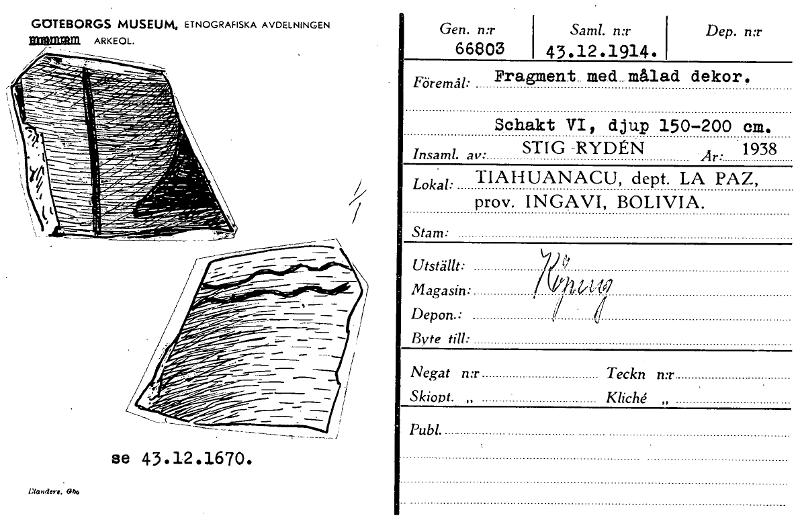 GÖTEBORGS MUSEUM, ETNOGRAFISKA AVDELNINGEN
ARKEOL.
se 43.12.1670.
Gen. n:r
66803
Saml. n:r
43.12.1914.
Dep. n:r
Föremål: Fragment med målad dekor.
Schakt VI, djup 150-200 cm.
Insaml. av: STIG RYDÉN År: 1938
Lokal: TIAHUANACU, dept. LA PAZ,
prov. INGAVI, BOLIVIA.
Stam:
Utställt:
Magasin:
Depon.:
Byte till:
Negat n:r Teckn n:r
Skiopt. „ Kliché „
Publ.